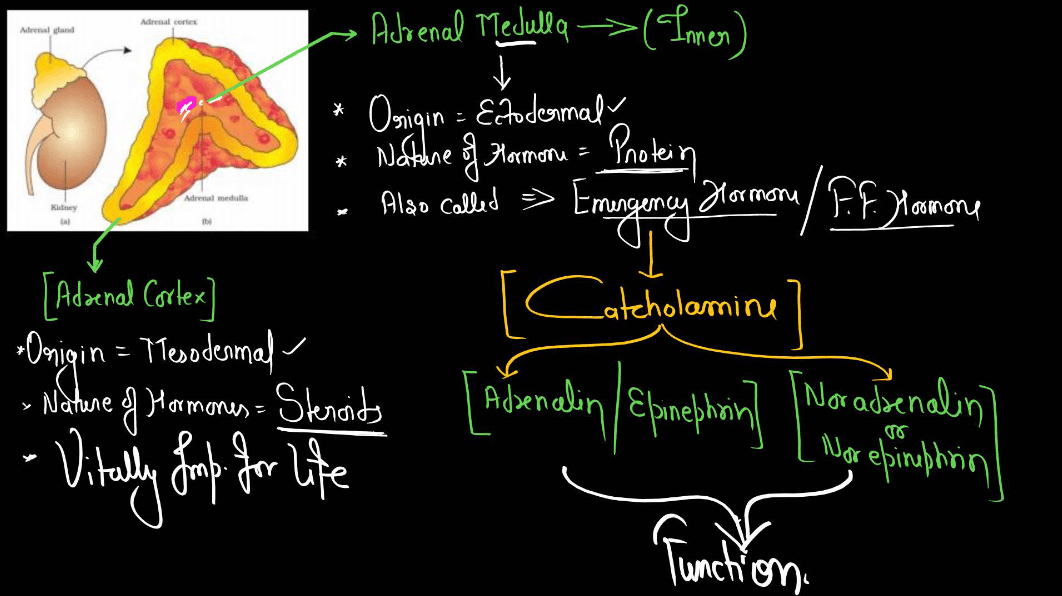 Adrenal gland
Adrenal cortex
Kidney
Adrenal medulla
(a)
(b)
Adrenal Medulla ⟹ (Inner)
* Origin = Ectodermal ✓
* Nature of Hormone = Protein
* Also called ⟹ Emergency Hormone / F.F. Hormone
[Catcholamine]
[Adrenalin / Epinephrin]
[Noradrenalin
or
Norepinephrin]
Function.
[Adrenal Cortex]
* Origin = Mesodermal ✓
* Nature of Hormones = Steroids
* Vitally Imp. for Life